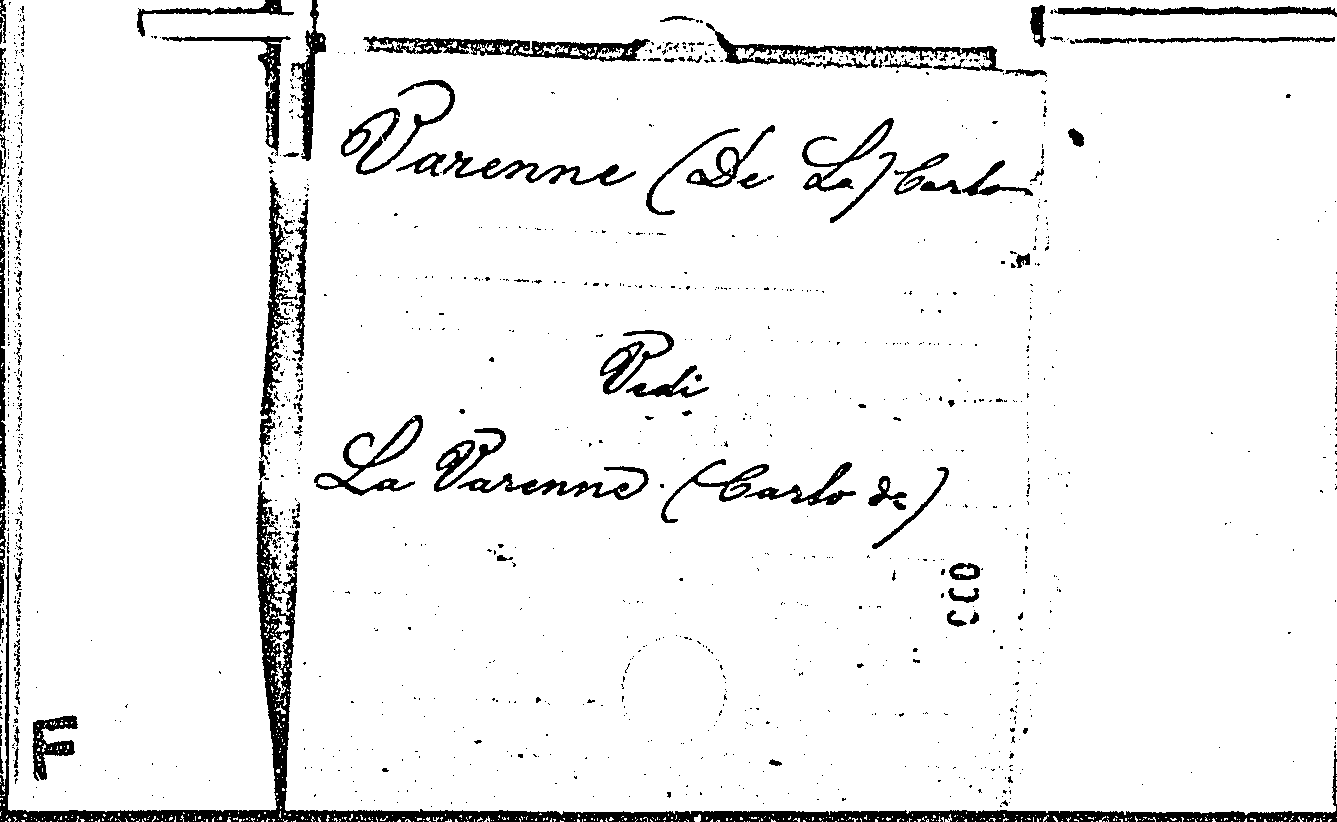 Varenne (De La) Carlo
Vedi
La Varenne. (Carlo de)